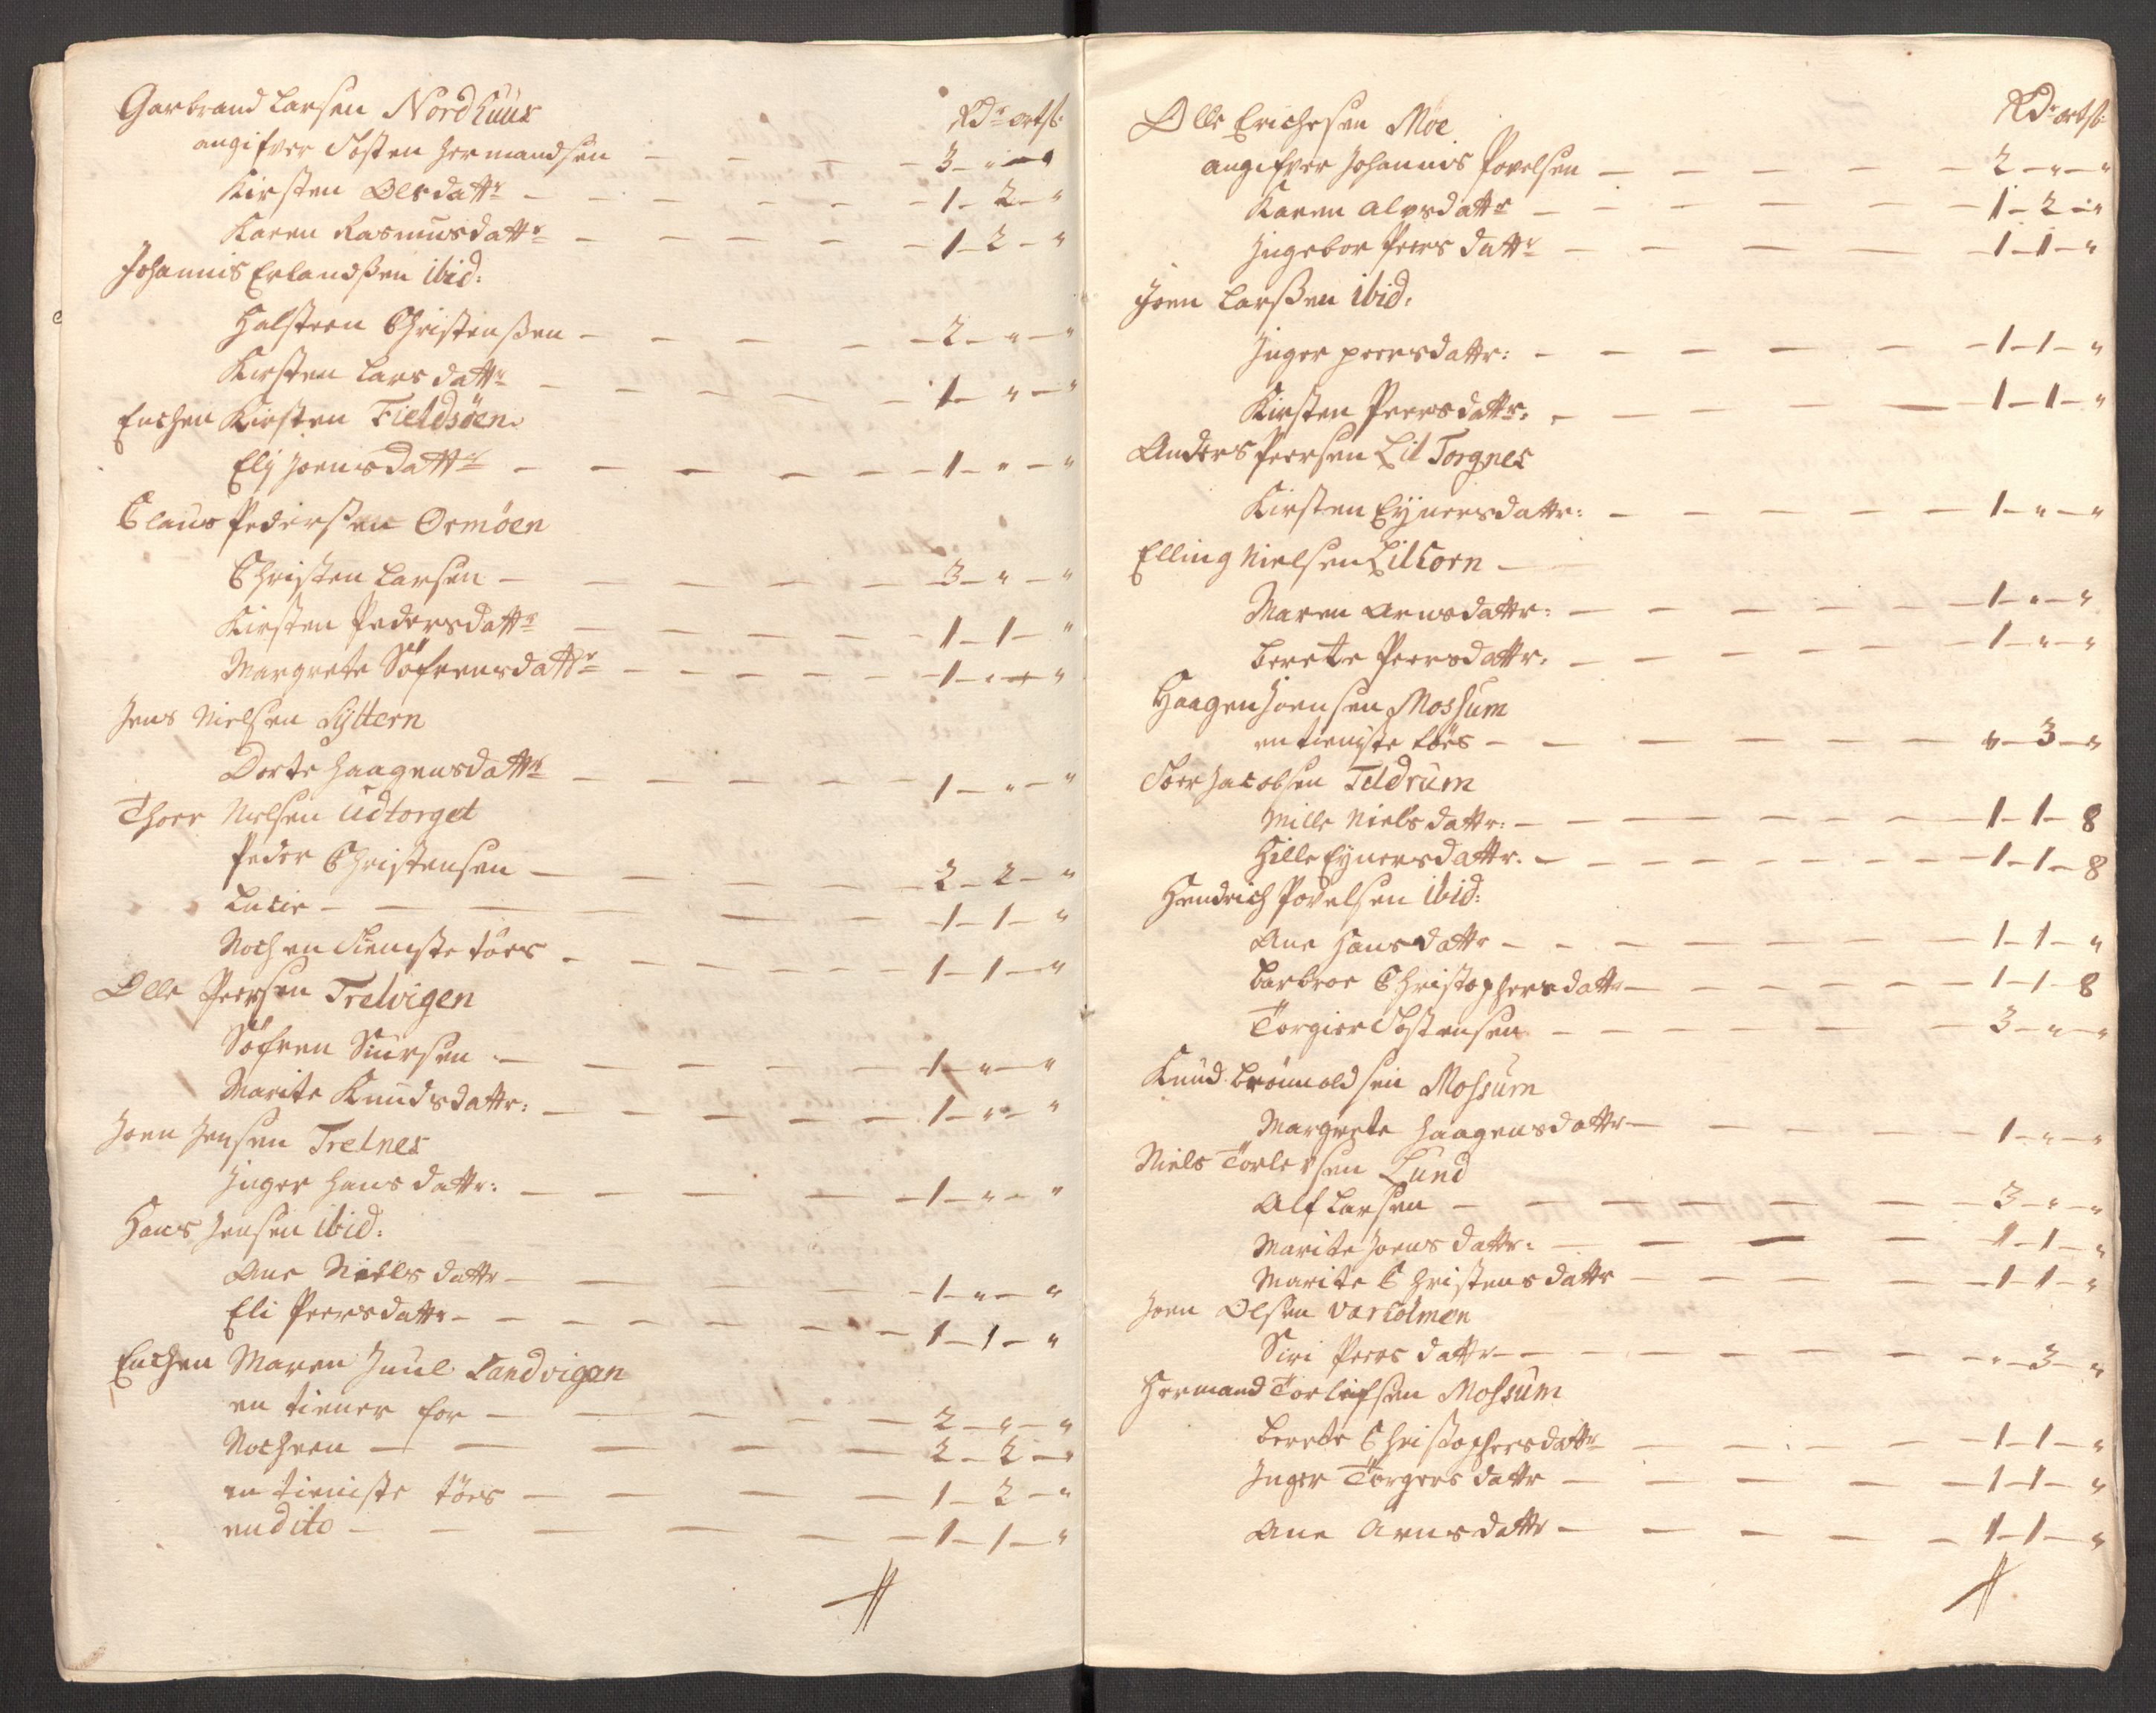 Garbrand Larsen Nordhuus
Rdr ort ß:
angifver Tosten Hermandsen — — — — 3 - " - "
Kirsten Olsdattr — — — — — 1 - 2 - "
Karen Rasmusdattr — — — — — 1 - 2 - "
Johannis Erlandssen ibid:
Halsteen Christenssen — — — — 2 - " - "
Kirsten Larsdattr — — — — — 1 - " - "
Enchen Kirsten Fieldsöen
Elj Joensdattr — — — — — 1 - " - "
Claus Pederssen Ormöen
Christen Larsen — — — — — 3 - " - "
Kirsten Pedersdattr — — — — 1 - 1 - "
Margrete Söfrensdattr — — — — 1 - " - "
Jens Nielsen Lyttern
Dorte Haagensdattr — — — — 1 - " - "
Thorr Nielsen Udtorget
Peder Christensen — — — — 2 - 2 - "
Lucie — — — — — 1 - 1 - "
Noch en Tieniste töes — — — — 1 - 1 - "
Olle Peersen Trelvigen
Söfren Siursen — — — — — 1 - " - "
Marite Knudsdattr: — — — — 1 - " - "
Joen Jensen Trelnes
Inger Hansdattr: — — — — 1 - " - "
Hans Jensen ibid:
Ane Nielsdattr — — — — 1 - " - "
Eli Peersdattr — — — — — 1 - 1 - "
Enchen Maren Juul Sandvigen
en tiener for — — — — 2 - " - "
Noch een — — — — — 2 - 2 - "
en tieniste töes — — — — 1 - 2 - "
en dito — — — — — 1 - 1 - "
Olle Erichsen Moe
Rdr ort ß:
angifver Johannis Povelsen — — — — 2 - " - "
Karen Alvsdattr — — — — — 1 - 2 - "
Ingebor Peersdattr — — — — 1 - 1 - "
Joen Larssen ibid:
Inger peersdattr: — — — — 1 - 1 - "
Kirsten Peersdattr: — — — — 1 - 1 - "
Anders Peersen Lil Torgnes
Kirsten Eynersdattr: — — — — 1 - " - "
Elling Nielsen Lilhorn —
Maren Arnsdattr: — — — — 1 - " - "
Berete Peersdattr: — — — — 1 - " - "
Haagen Joensen Mossum
en tieniste töes — — — — " - 3 - "
Peer Jacobsen Teldrum
Mille Nielsdattr: — — — — 1 - 1 - 8
Hille Eynersdattr. — — — — 1 - 1 - 8
Hendrich Povelsen ibid:
Ane Hansdattr — — — — 1 - 1 - "
Barbroe Christophersdattr — — — — 1 - 1 - 8
Torgier Tostensen — — — — 3 - " - "
Knud Brönnoldsen Mossum
Margrete Haagensdattr — — — — 1 - " - "
Niels Torlevsen Lund
Alf Larsen — — — — — 3 - " - "
Marite Joensdattr: — — — — 1 - 1 - "
Marite Christensdattr — — — — 1 - 1 - "
Joen Olsen Varholmen
Siri Peersdattr — — — — " - 3 - "
Hermand Torlefsen Mossum
Berete Christophersdattr — — — 1 - 1 - "
Inger Torgersdattr — — — — 1 - 1 - "
Ane Arnsdattr — — — — 1 - 1 - "